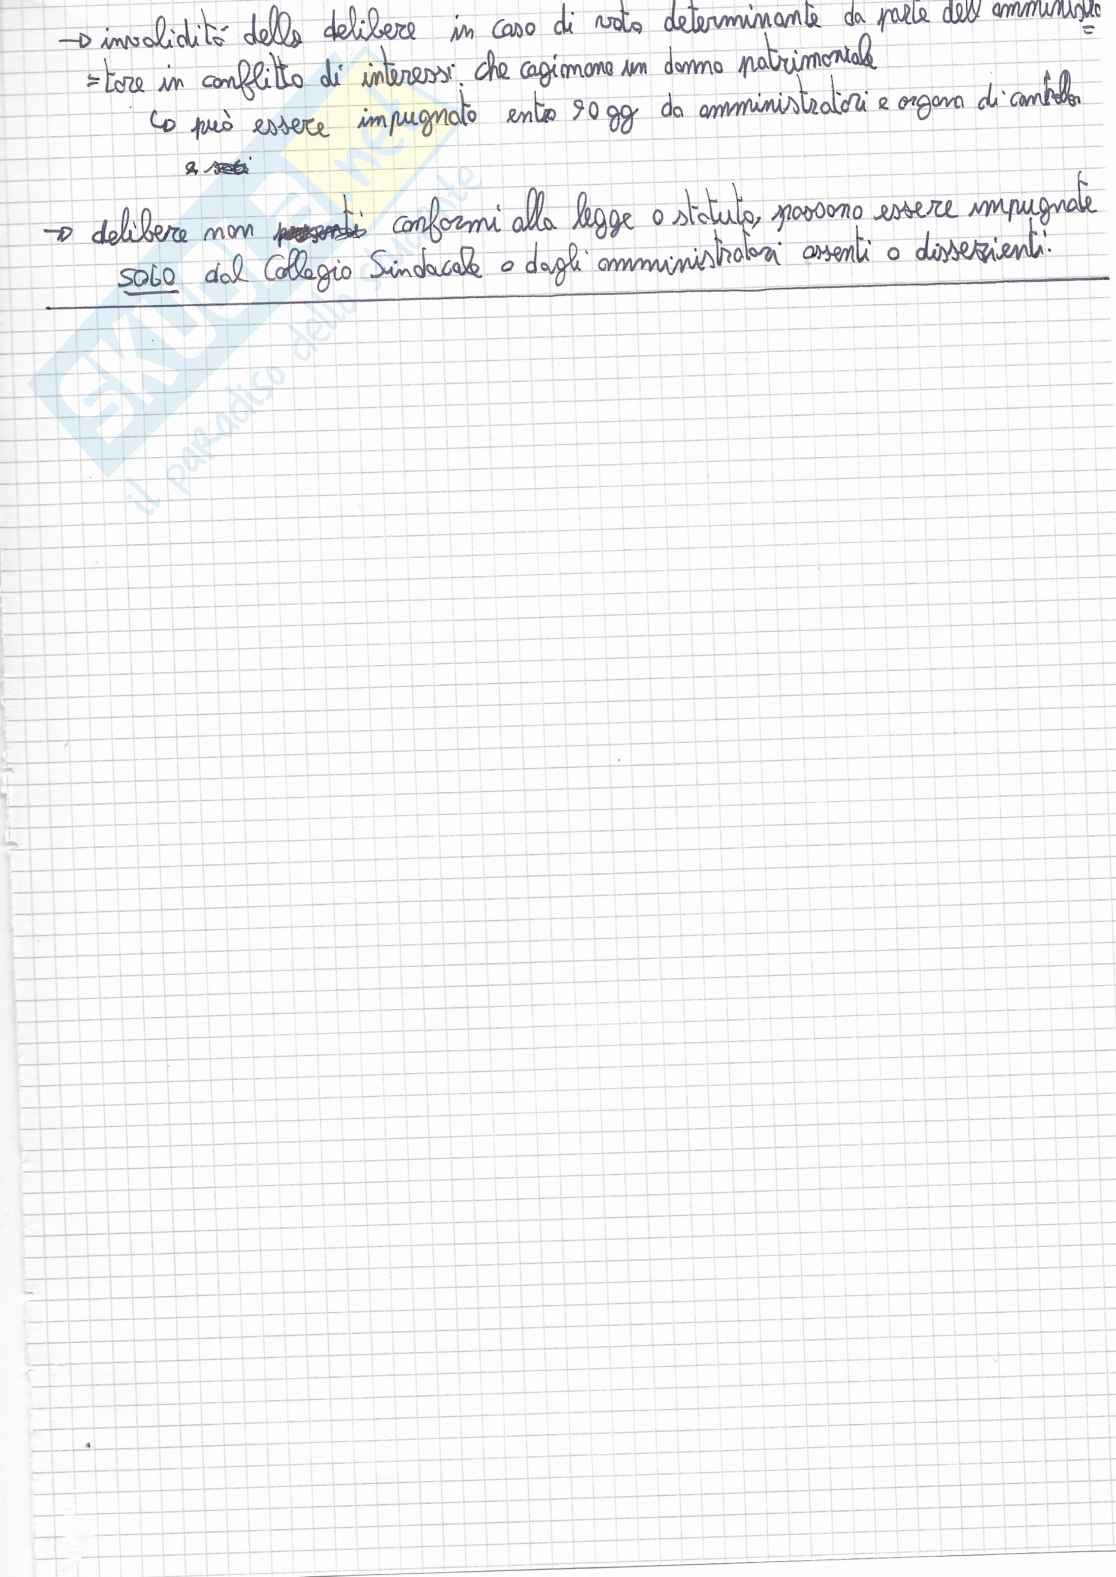 → invalidità delle delibere in caso di voto determinante da parte dell'amministra
=tore in conflitto di interessi, che cagionano un danno patrimoniale
↳ può essere impugnato entro 90 gg da amministratori e organo di controllo
→ delibere non conformi alla legge o statuto, possono essere impugnate
SOLO dal Collegio Sindacale o dagli amministratori assenti o dissenzienti.
SKUOLA.net
il paradiso dello studente